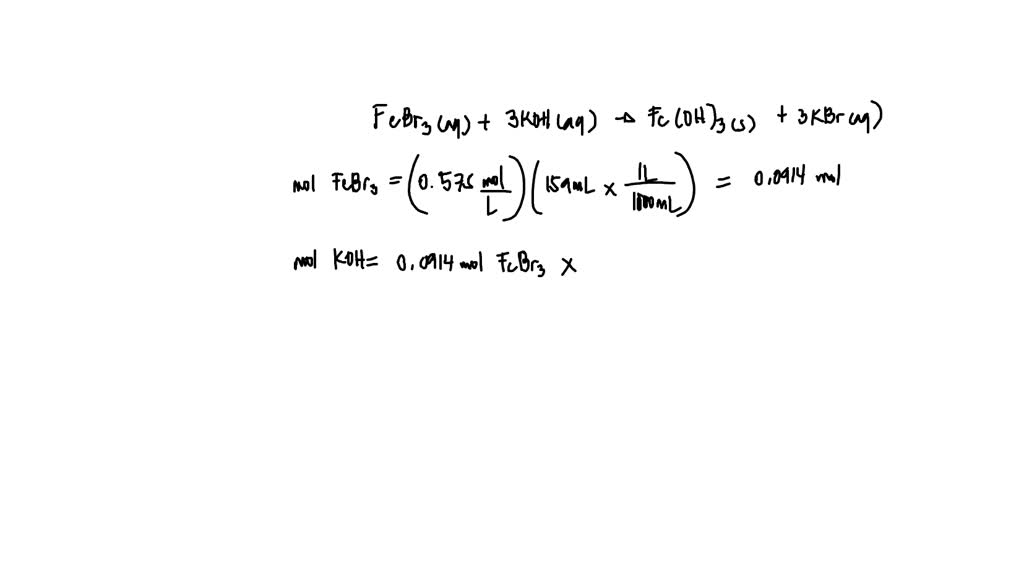 FeBr3 (aq) + 3KOH (aq) → Fe(OH)3 (s) + 3KBr (aq)
mol FeBr3 = (0.575 mol/L)(159mL × 1L/1000mL) = 0.0914 mol
mol KOH = 0.0914 mol FeBr3 ×